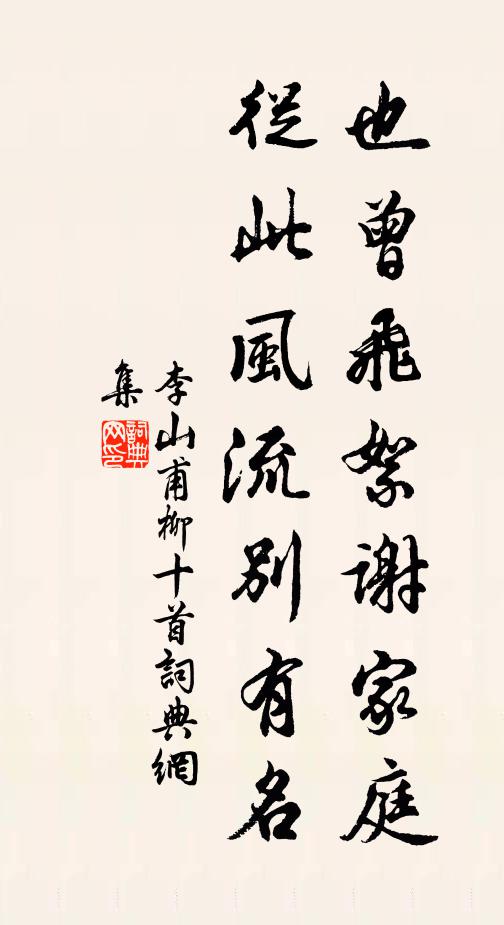 也曾飛絮謝家庭
從此風流別有名
李山甫柳十首詞典網
集
詞典
网印